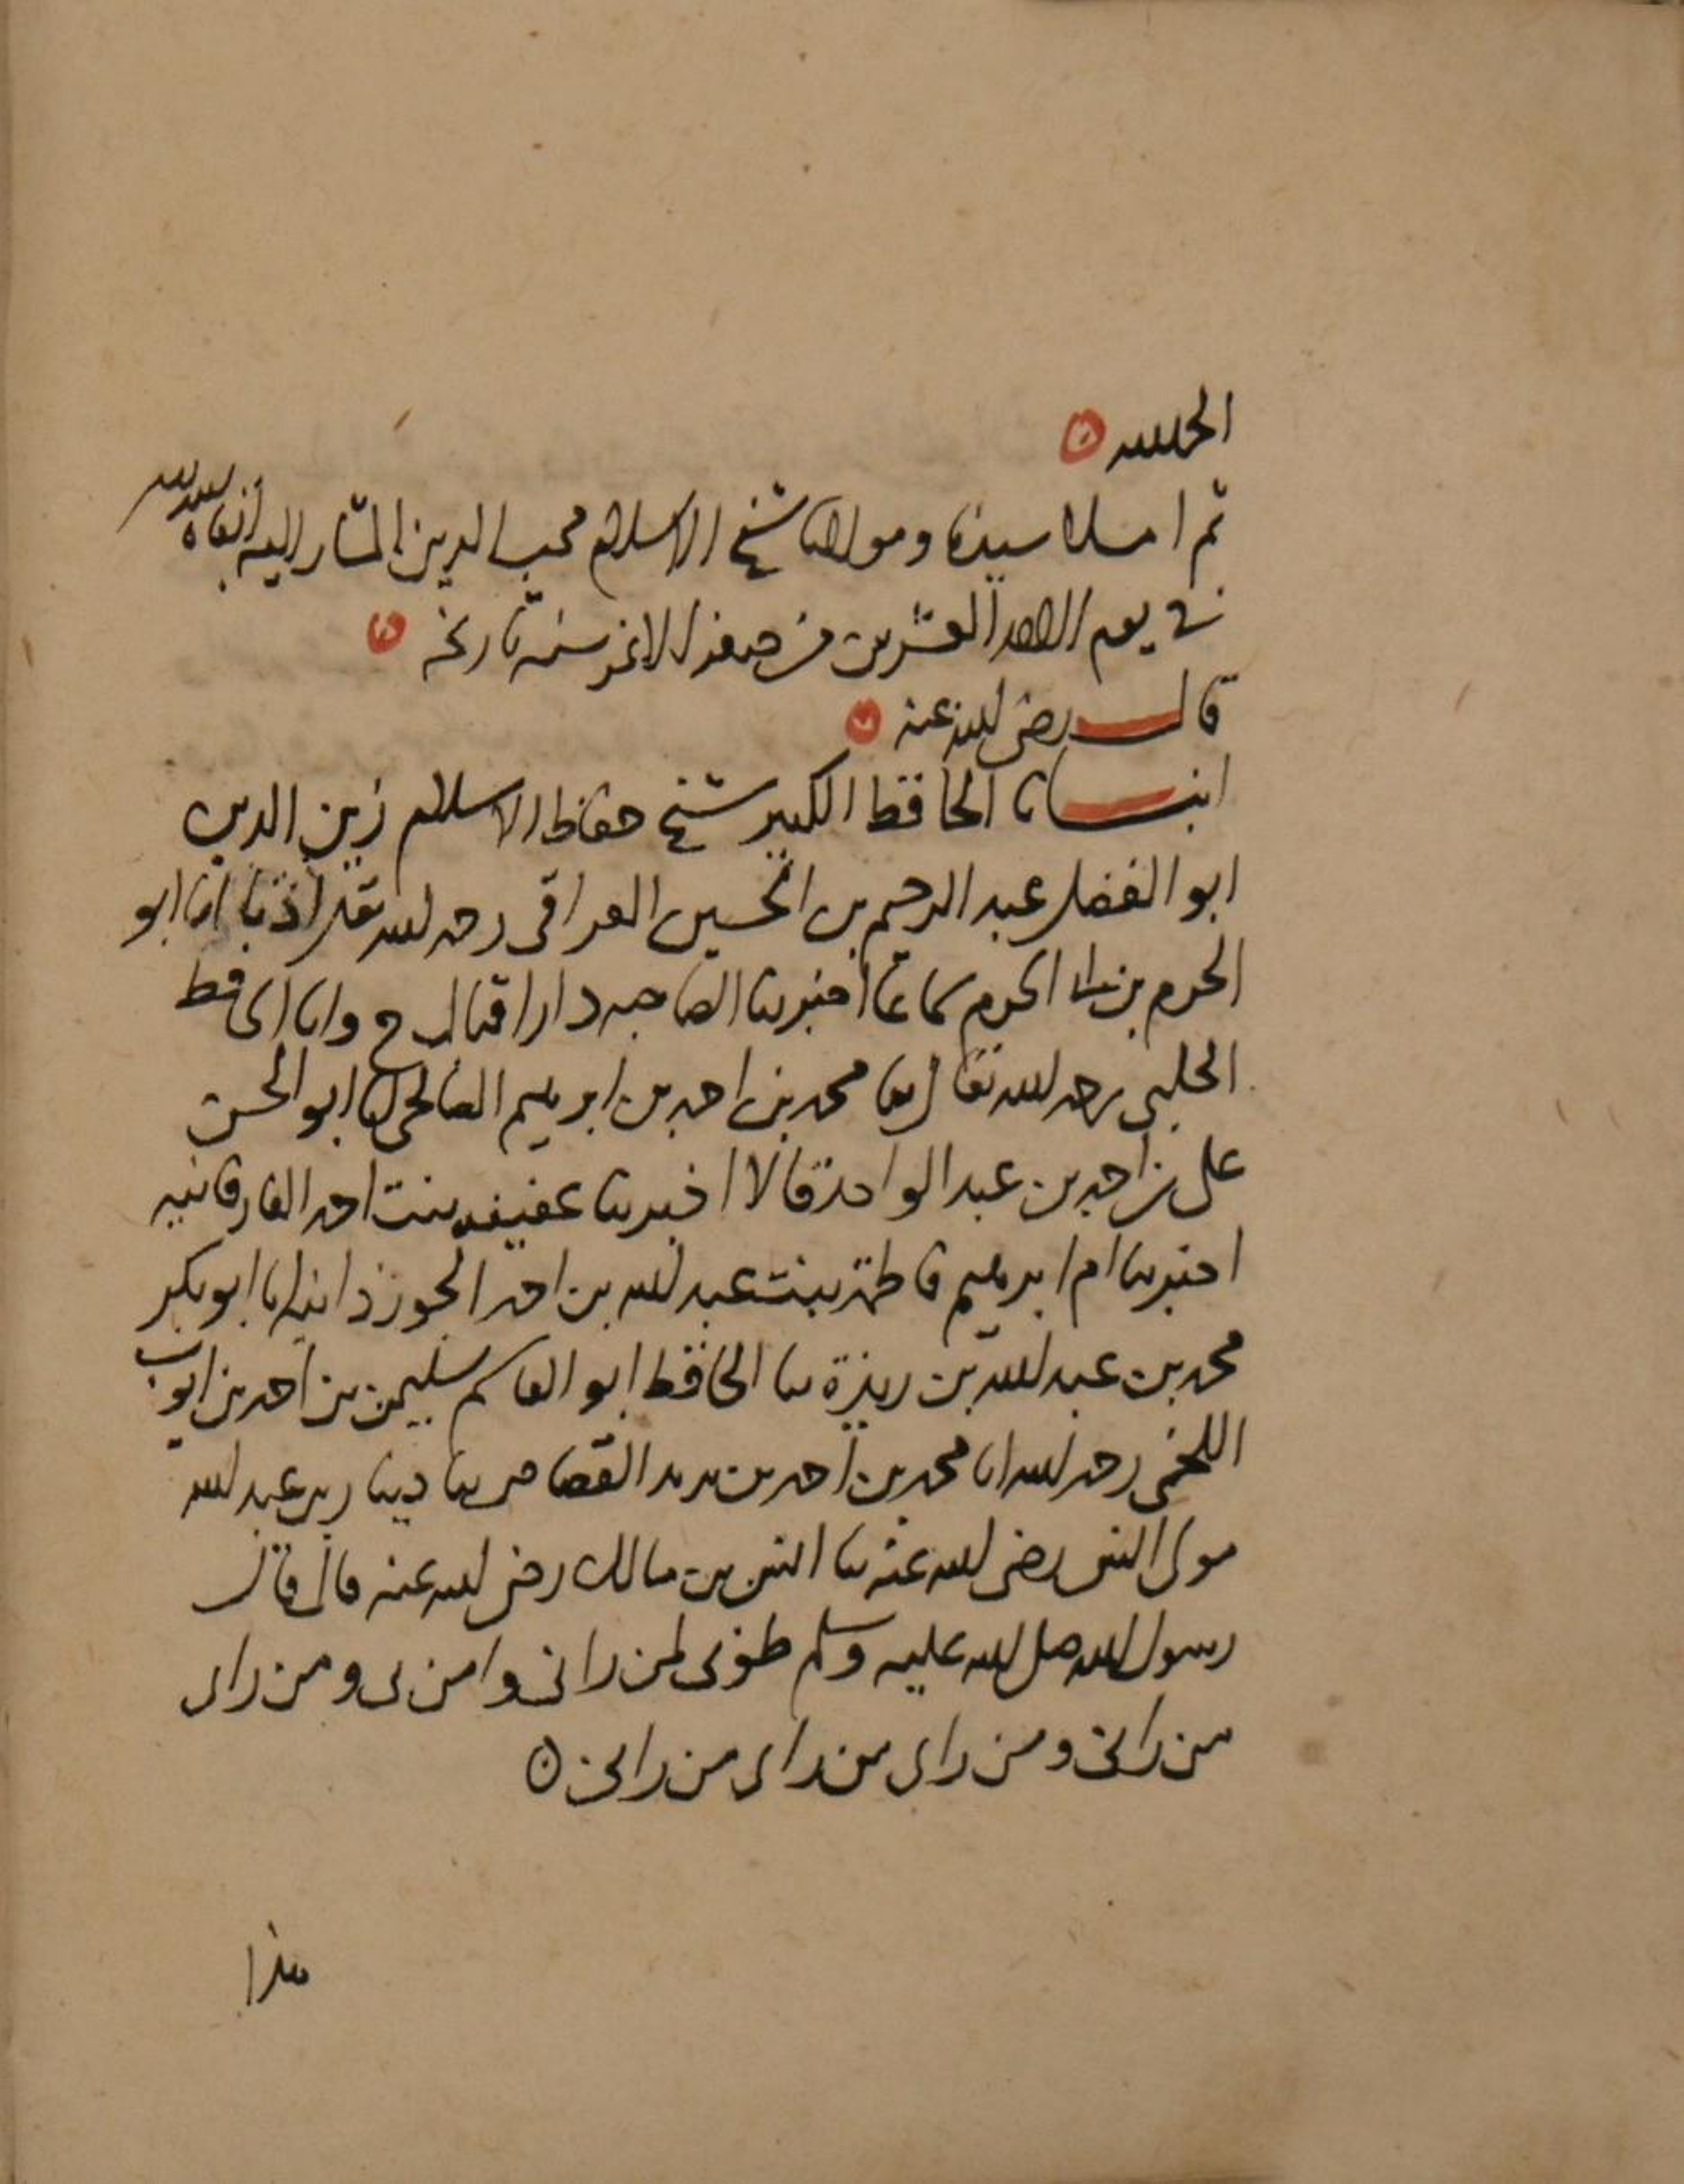 الحمد لله
ثم املا سيدنا ومولانا شيخ الاسلام محب الدين المشار اليه ابقاه الله
في يوم الاحد العشرين من صفر الاغر سنة تاريخه
قال رضي الله عنه
انبانا الحافظ الكبير شيخ حفاظ الاسلام زين الدين
ابو الفضل عبد الرحيم بن الحسين العراقي رحمه الله تعالى اذنا انا ابو
الحرم بن ابي الحرم سماعا اخبرتنا الصاحبه دار اقبال ح وانا الحافظ
الحلبي رحمه الله تعالى انا محمد بن احمد بن ابرهيم الصالحي انا ابو الحسن
علي بن احمد بن عبد الواحد قالا اخبرتنا عفيفه بنت احمد الفارقانيه
اخبرتنا ام ابرهيم فاطمة بنت عبد الله بن احمد الجوزذانيه انا ابو بكر
محمد بن عبد الله بن ريذة ثنا الحافظ ابو القاسم سليمن بن احمد بن ايوب
اللخمي رحمه الله انا محمد بن احمد بن يزيد القصاص ثنا دينار بن عبد الله
مولى انس رضي الله عنه ثنا انس بن مالك رضي الله عنه قال قال
رسول الله صلى الله عليه وسلم طوبى لمن راني وامن بي ومن راى
من راني ومن راى من راى من راني
هذا